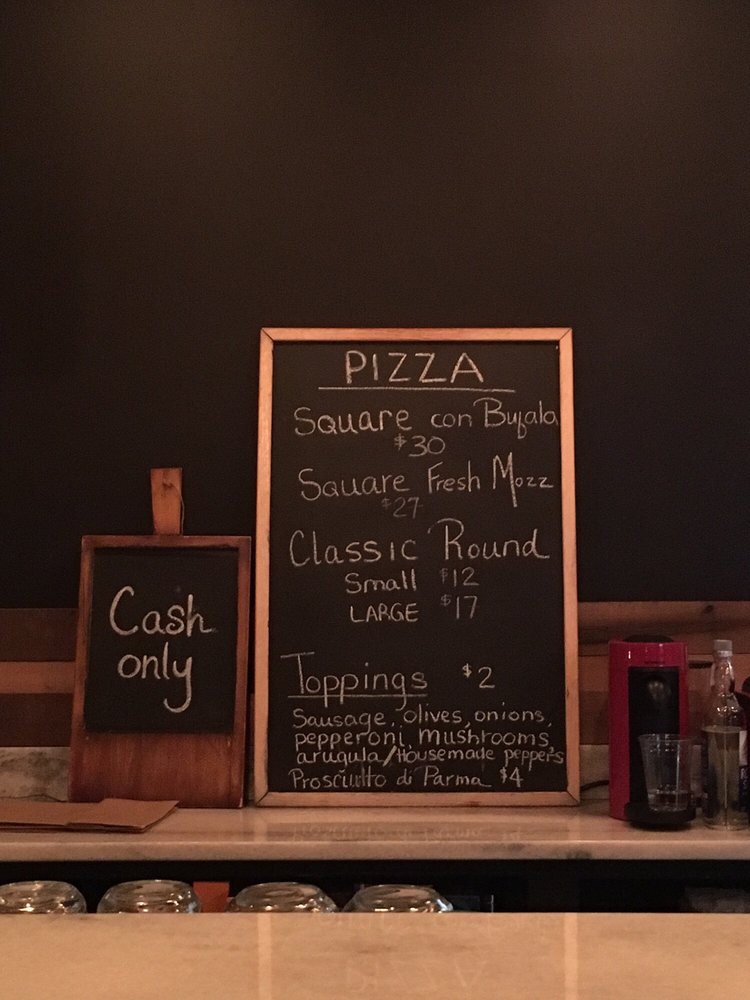 Cash
only
PIZZA
Square con Bufala
$30
Square Fresh Mozz
$27
Classic Round
Small $12
LARGE $17
Toppings $2
Sausage, olives, onions,
pepperoni, mushrooms
arugula/Housemade peppers
Prosciutto di Parma $4